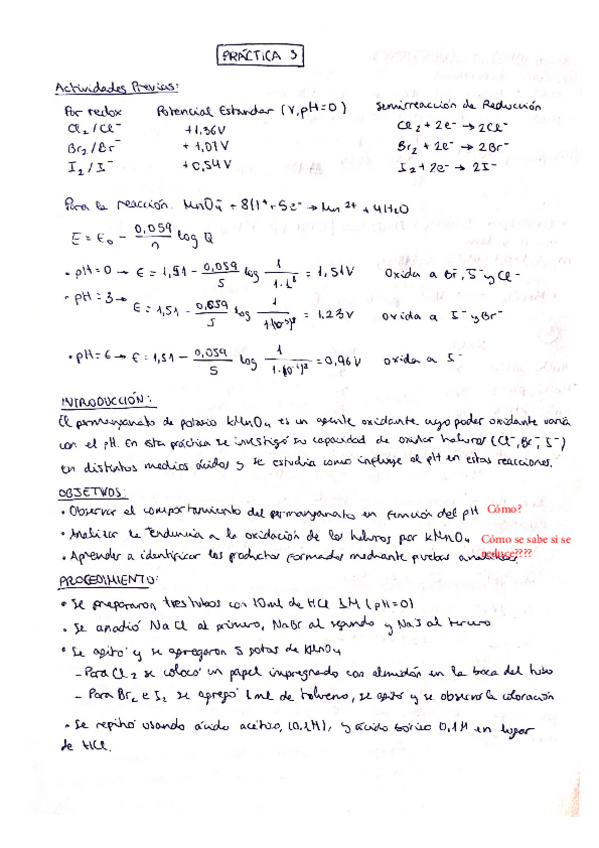 PRÁCTICA 3
Actividades Previas:
Par redox Potencial Estandar (V, pH=0) Semirreacción de Reducción
Cl₂/Cl⁻ +1,36V Cl₂ + 2e⁻ → 2Cl⁻
Br₂/Br⁻ +1,07V Br₂ + 2e⁻ → 2Br⁻
I₂/I⁻ +0,54V I₂ + 2e⁻ → 2I⁻
Para la reacción: MnO₄⁻ + 8H⁺ + 5e⁻ → Mn²⁺ + 4H₂O
E = E₀ - 0,059/n log Q
• pH=0 → E = 1,51 - 0,059/5 log 1/1·1⁸ = 1,51V Oxida a Br⁻, I⁻ y Cl⁻
• pH=3 → E = 1,51 - 0,059/5 log 1/1·(10⁻³)⁸ = 1.23V oxida a I⁻ y Br⁻
• pH=6 → E = 1,51 - 0,059/5 log = 0,96V oxida a I⁻
INTRODUCCIÓN:
El permanganato de potasio KMnO₄ es un agente oxidante cuyo poder oxidante varía
con el pH. En esta práctica se investigó su capacidad de oxidar haluros (Cl⁻, Br⁻, I⁻)
en distintos medios ácidos y se estudia como influye el pH en estas reacciones.
OBJETIVOS:
• Observar el comportamiento del permanganato en función del pH Cómo?
• Analizar la tendencia a la oxidación de los haluros por KMnO₄ Cómo se sabe si se
• Aprender a identificar los productos formados mediante pruebas reduce????
PROCEDIMIENTO:
• Se prepararon tres tubos con 10ml de HCl 1M (pH=0)
• Se añadió NaCl al primero, NaBr al segundo y NaI al tercero
• Se agitó y se agregaron 5 gotas de KMnO₄
- Para Cl₂ se colocó un papel impregnado con almidón en la boca del tubo
- Para Br₂ e I₂ se agregó 1ml de tolueno, se agitó y se observó la coloración
• Se repitió usando ácido acético, (0,1M), y ácido bórico 0,1M en lugar
de HCl.